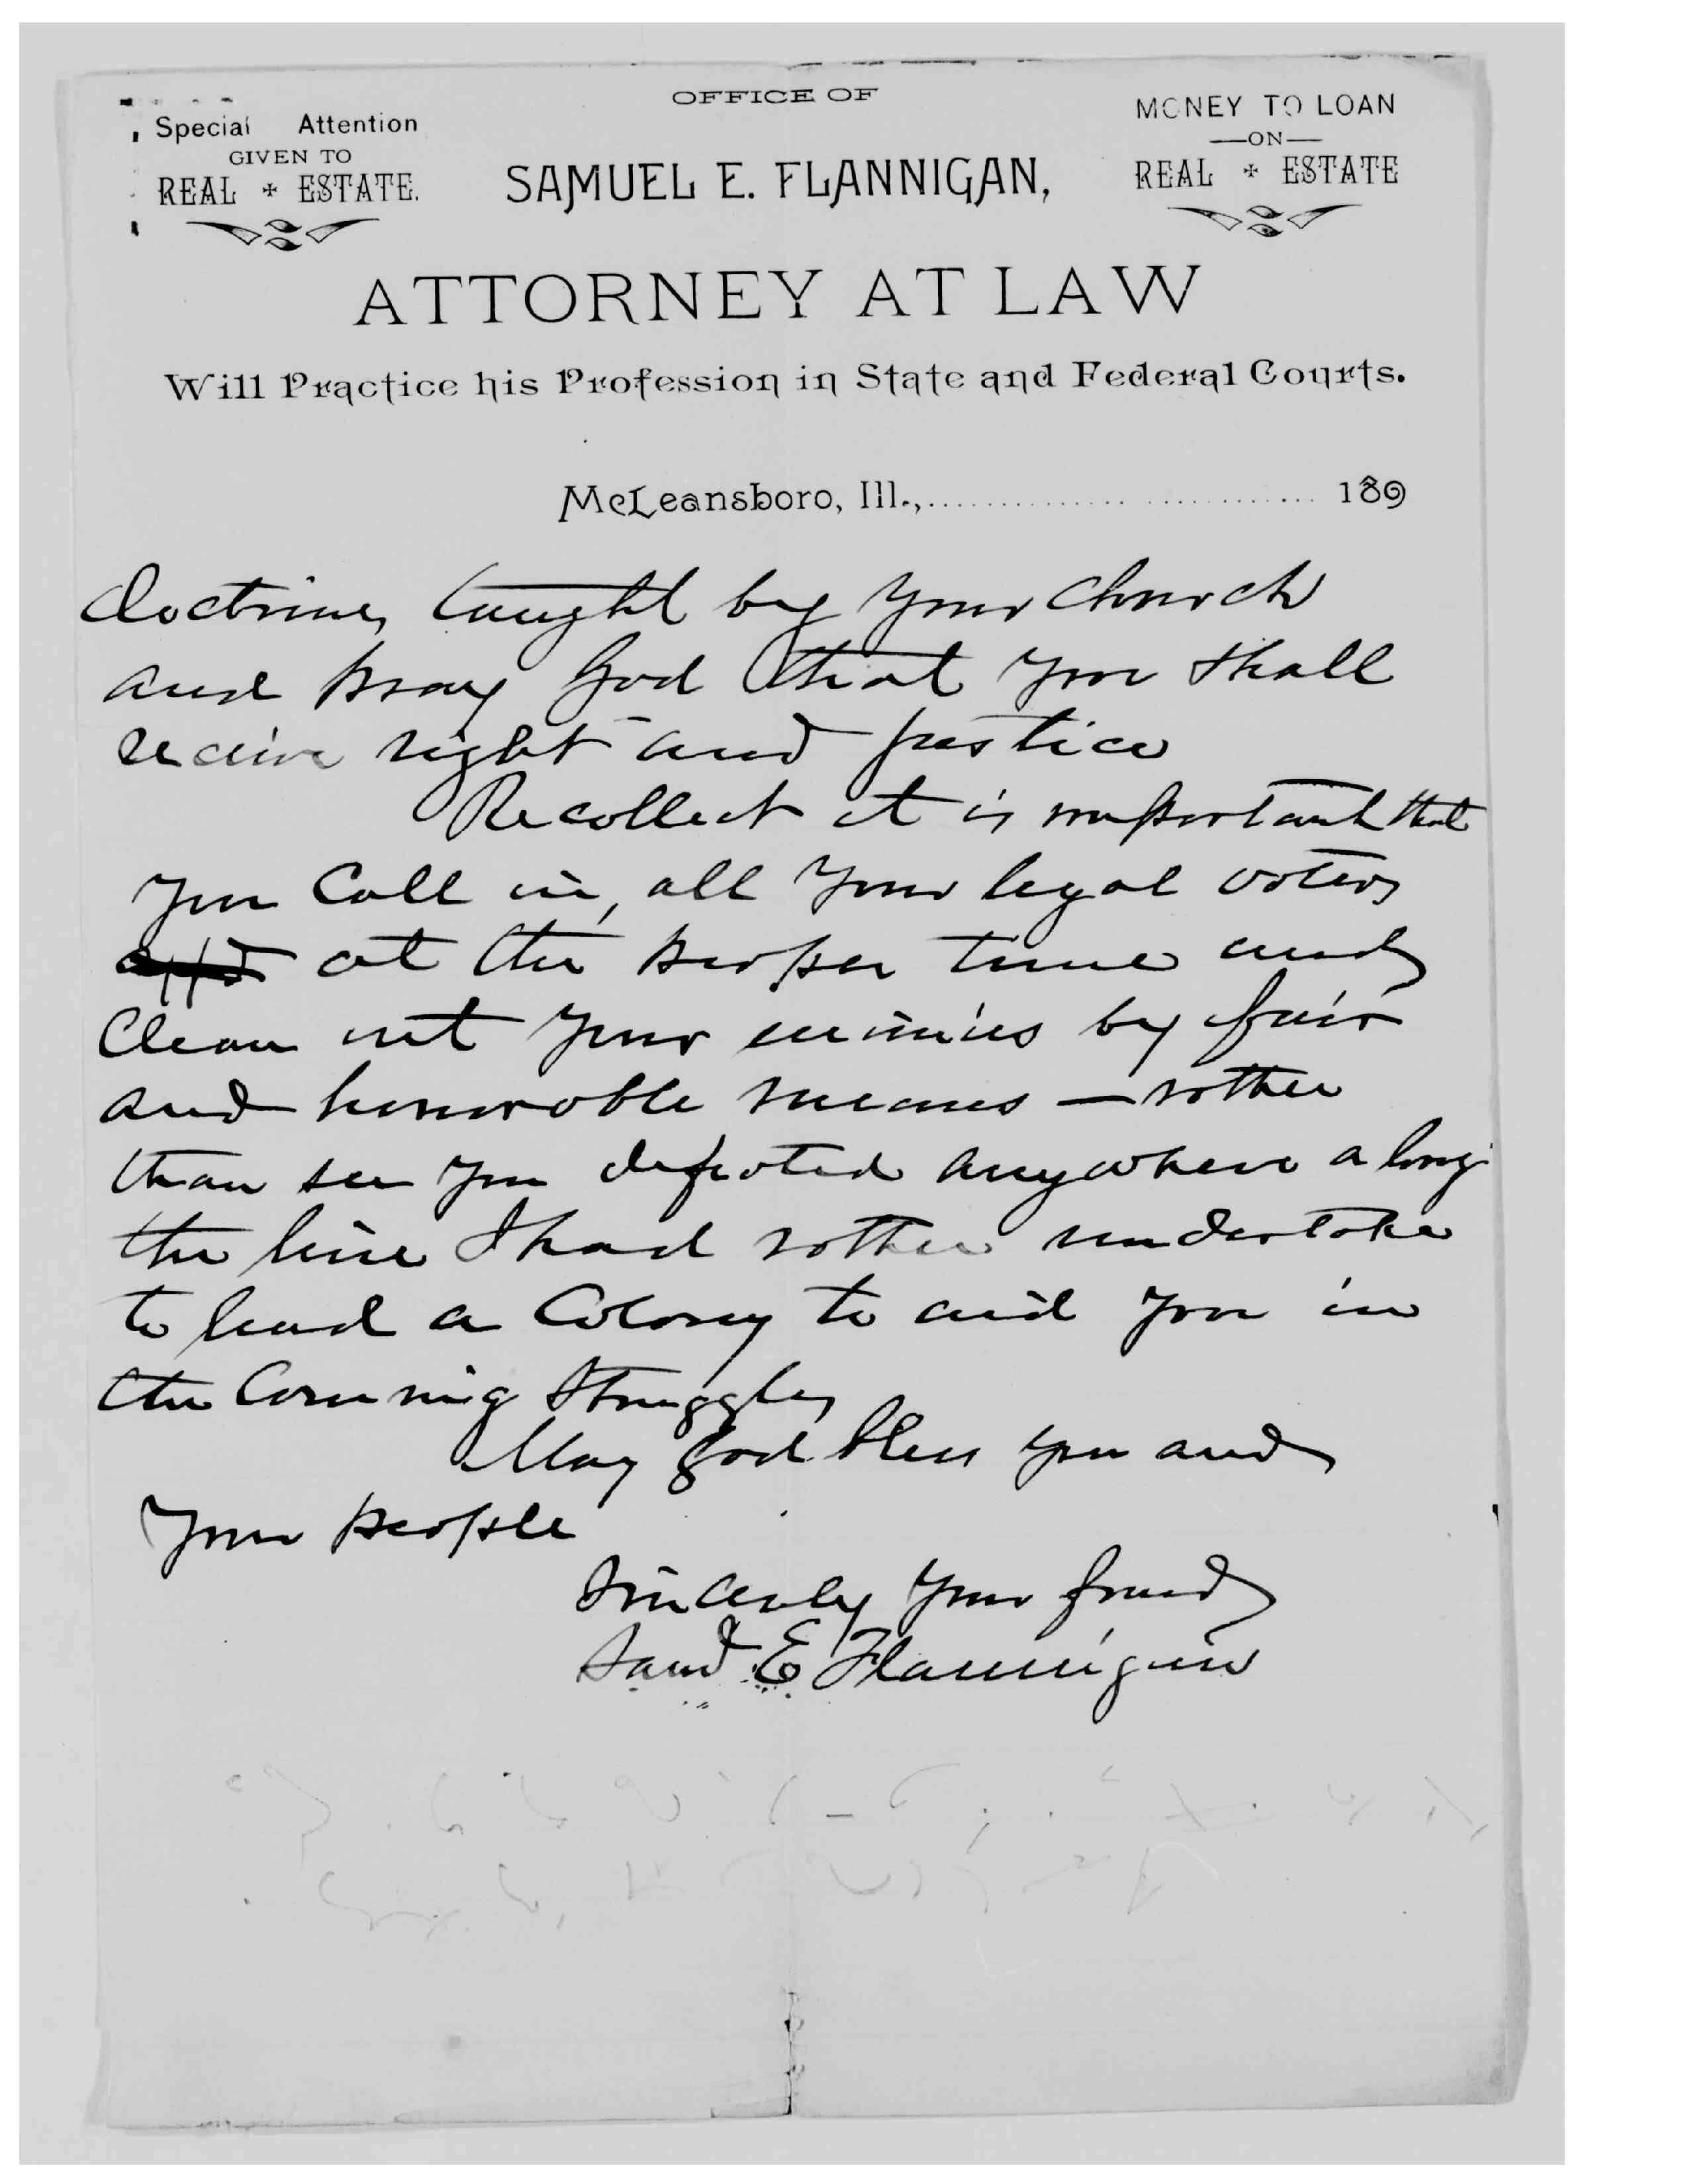 OFFICE OF
Special Attention
GIVEN TO
REAL ESTATE.
SAMUEL E. FLANNIGAN,
MONEY TO LOAN
—ON—
REAL ESTATE
ATTORNEY AT LAW
Will Practice his Profession in State and Federal Courts.
McLeansboro, Ill., 189
doctrines taught by your Church
and pray God that you shall
receive right and justice
Recollect it is important that
you Call in, all your legal voters
at the proper time and
Clean out your enimies by fair
and honorable means — rather
than see you defeated anywhere along
the line I had rather undertake
to lead a Colony to aid you in
the Comming struggles
May God bless you and
your people
Sincerely your friend
Saml E Flannigan